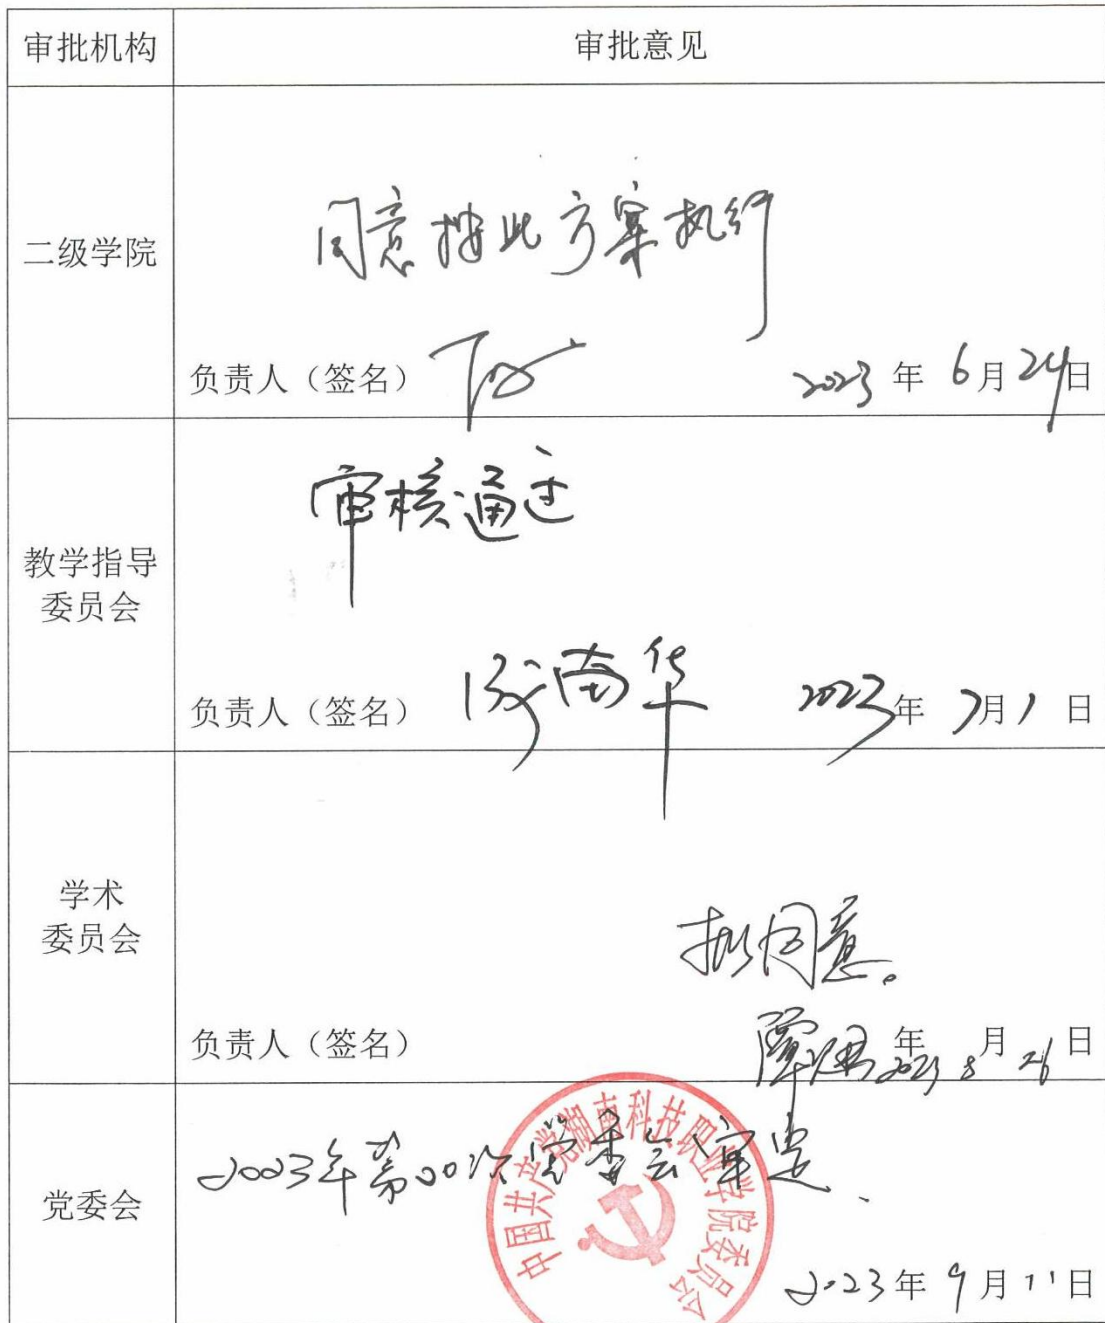 审批机构 审批意见
二级学院
同意按此方案执行
负责人（签名） 2023 年 6月24日
教学指导
委员会
审核通过
负责人（签名） 南华 2023年 7月1日
学术
委员会
拟同意。
负责人（签名） 年 月 日
覃 2023 8 26
党委会
2023年第20次党委会审定、
中国共产党湖南科技职业学院委员会
2023年9月11日